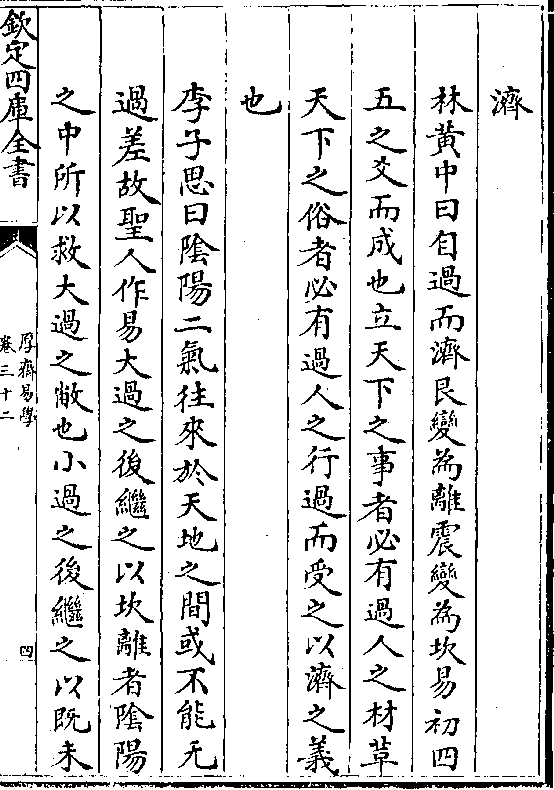 濟
林黄中曰自過而濟艮變為離震變為坎易初四
五之爻而成也立天下之事者必有過人之材草
天下之俗者必有過人之行過而受之以濟之義
也
李子思曰陰陽二氣往來於天地之間或不能无
過差故聖人作易大過之後繼之以坎離者陰陽
之中所以救大過之敝也小過之後繼之以既未
欽定四庫全書
厚齋易學
卷三十二
四